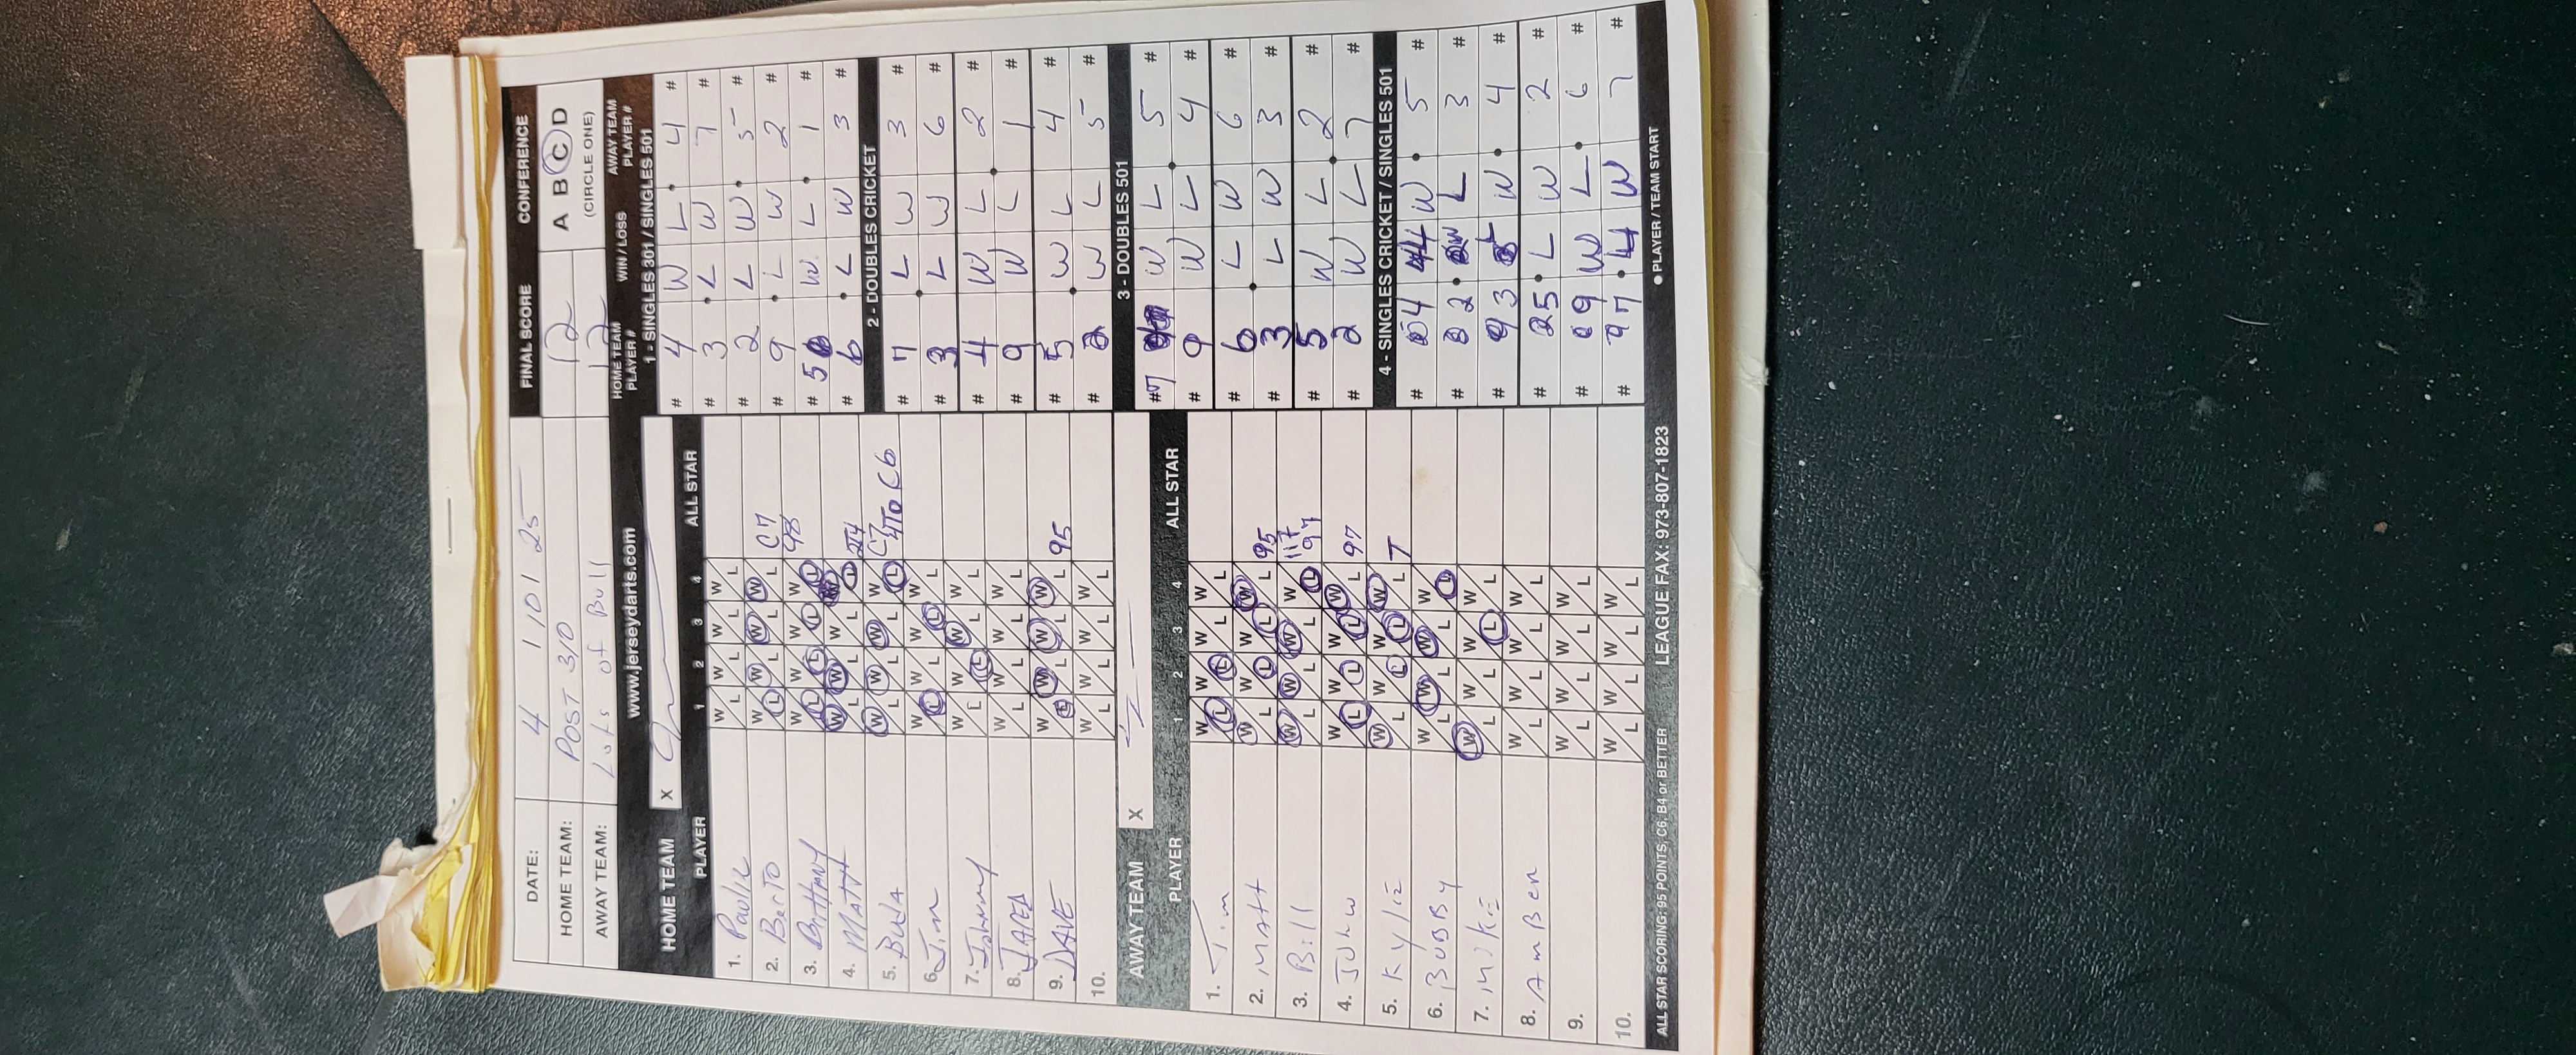 DATE: 4 1 10 1 25
FINAL SCORE CONFERENCE
HOME TEAM: POST 310 12 A B C D
AWAY TEAM: Lots of Bull 12 (CIRCLE ONE)
www.jerseydarts.com
HOME TEAM PLAYER # WIN / LOSS AWAY TEAM PLAYER #
HOME TEAM X
PLAYER 1 2 3 4 ALL STAR
1. Paulie W L W L W L W L
2. BerTo W L W L W L W L C7
3. Brittany W L W L W L W L 98
4. MATT W L W L W L W L
5. BUdA W L W L W L W L C7 4To C6
6. Jim W L W L W L W L
7. Johnny W L W L W L W L
8. JARED W L W L W L W L
9. DAVE W L W L W L W L 95
10. W L W L W L W L
AWAY TEAM X
PLAYER 1 2 3 4 ALL STAR
1. Tim W L W L W L W L
2. MAtt W L W L W L W L 95
3. Bill W L W L W L W L 117 97
4. John W L W L W L W L 97
5. Kylie W L W L W L W L T
6. BUBBy W L W L W L W L
7. Mike W L W L W L W L
8. AmBer W L W L W L W L
9. W L W L W L W L
10. W L W L W L W L
1 - SINGLES 301 / SINGLES 501
# 4 W L 4 #
# 3 L W 7 #
# 2 L W 5 #
# 9 L W 2 #
# 5 W L 1 #
# 6 L W 3 #
2 - DOUBLES CRICKET
# 7 L W 3 #
# 3 L W 6 #
# 4 W L 2 #
# 9 W L 1 #
# 5 W L 4 #
# 2 W L 5 #
3 - DOUBLES 501
# 7 W L 5 #
# 9 W L 4 #
# 6 L W 6 #
# 3 L W 3 #
# 5 W L 2 #
# 2 W L 7 #
4 - SINGLES CRICKET / SINGLES 501
# 4 W 5 #
# 2 W L 3 #
# 3 L W 4 #
# 5 L W 2 #
# 9 W L 6 #
# 7 L W 7 #
ALL STAR SCORING: 95 POINTS, C6, B4 or BETTER LEAGUE FAX: 973-807-1823 ● PLAYER / TEAM START